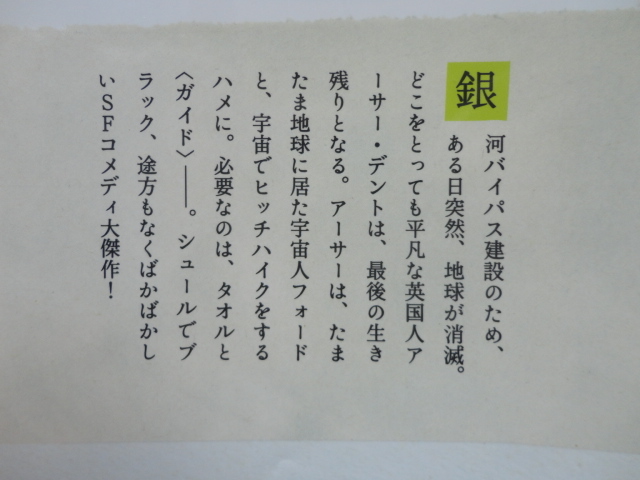 銀河バイパス建設のため、
ある日突然、地球が消滅。
どこをとっても平凡な英国人ア
ーサー・デントは、最後の生き
残りとなる。アーサーは、たま
たま地球に居た宇宙人フォード
と、宇宙でヒッチハイクをする
ハメに。必要なのは、タオルと
〈ガイド〉――。シュールでブ
ラック、途方もなくばかばかし
いSFコメディ大傑作！